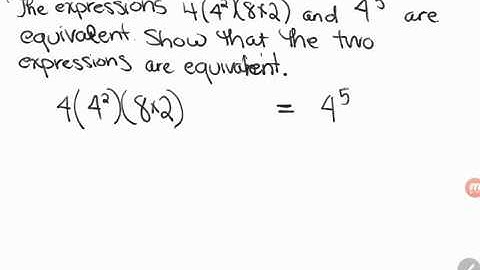 The expressions 4(4²)(8×2) and 4⁵ are
equivalent. Show that the two
expressions are equivalent.
4(4²)(8×2) = 4⁵